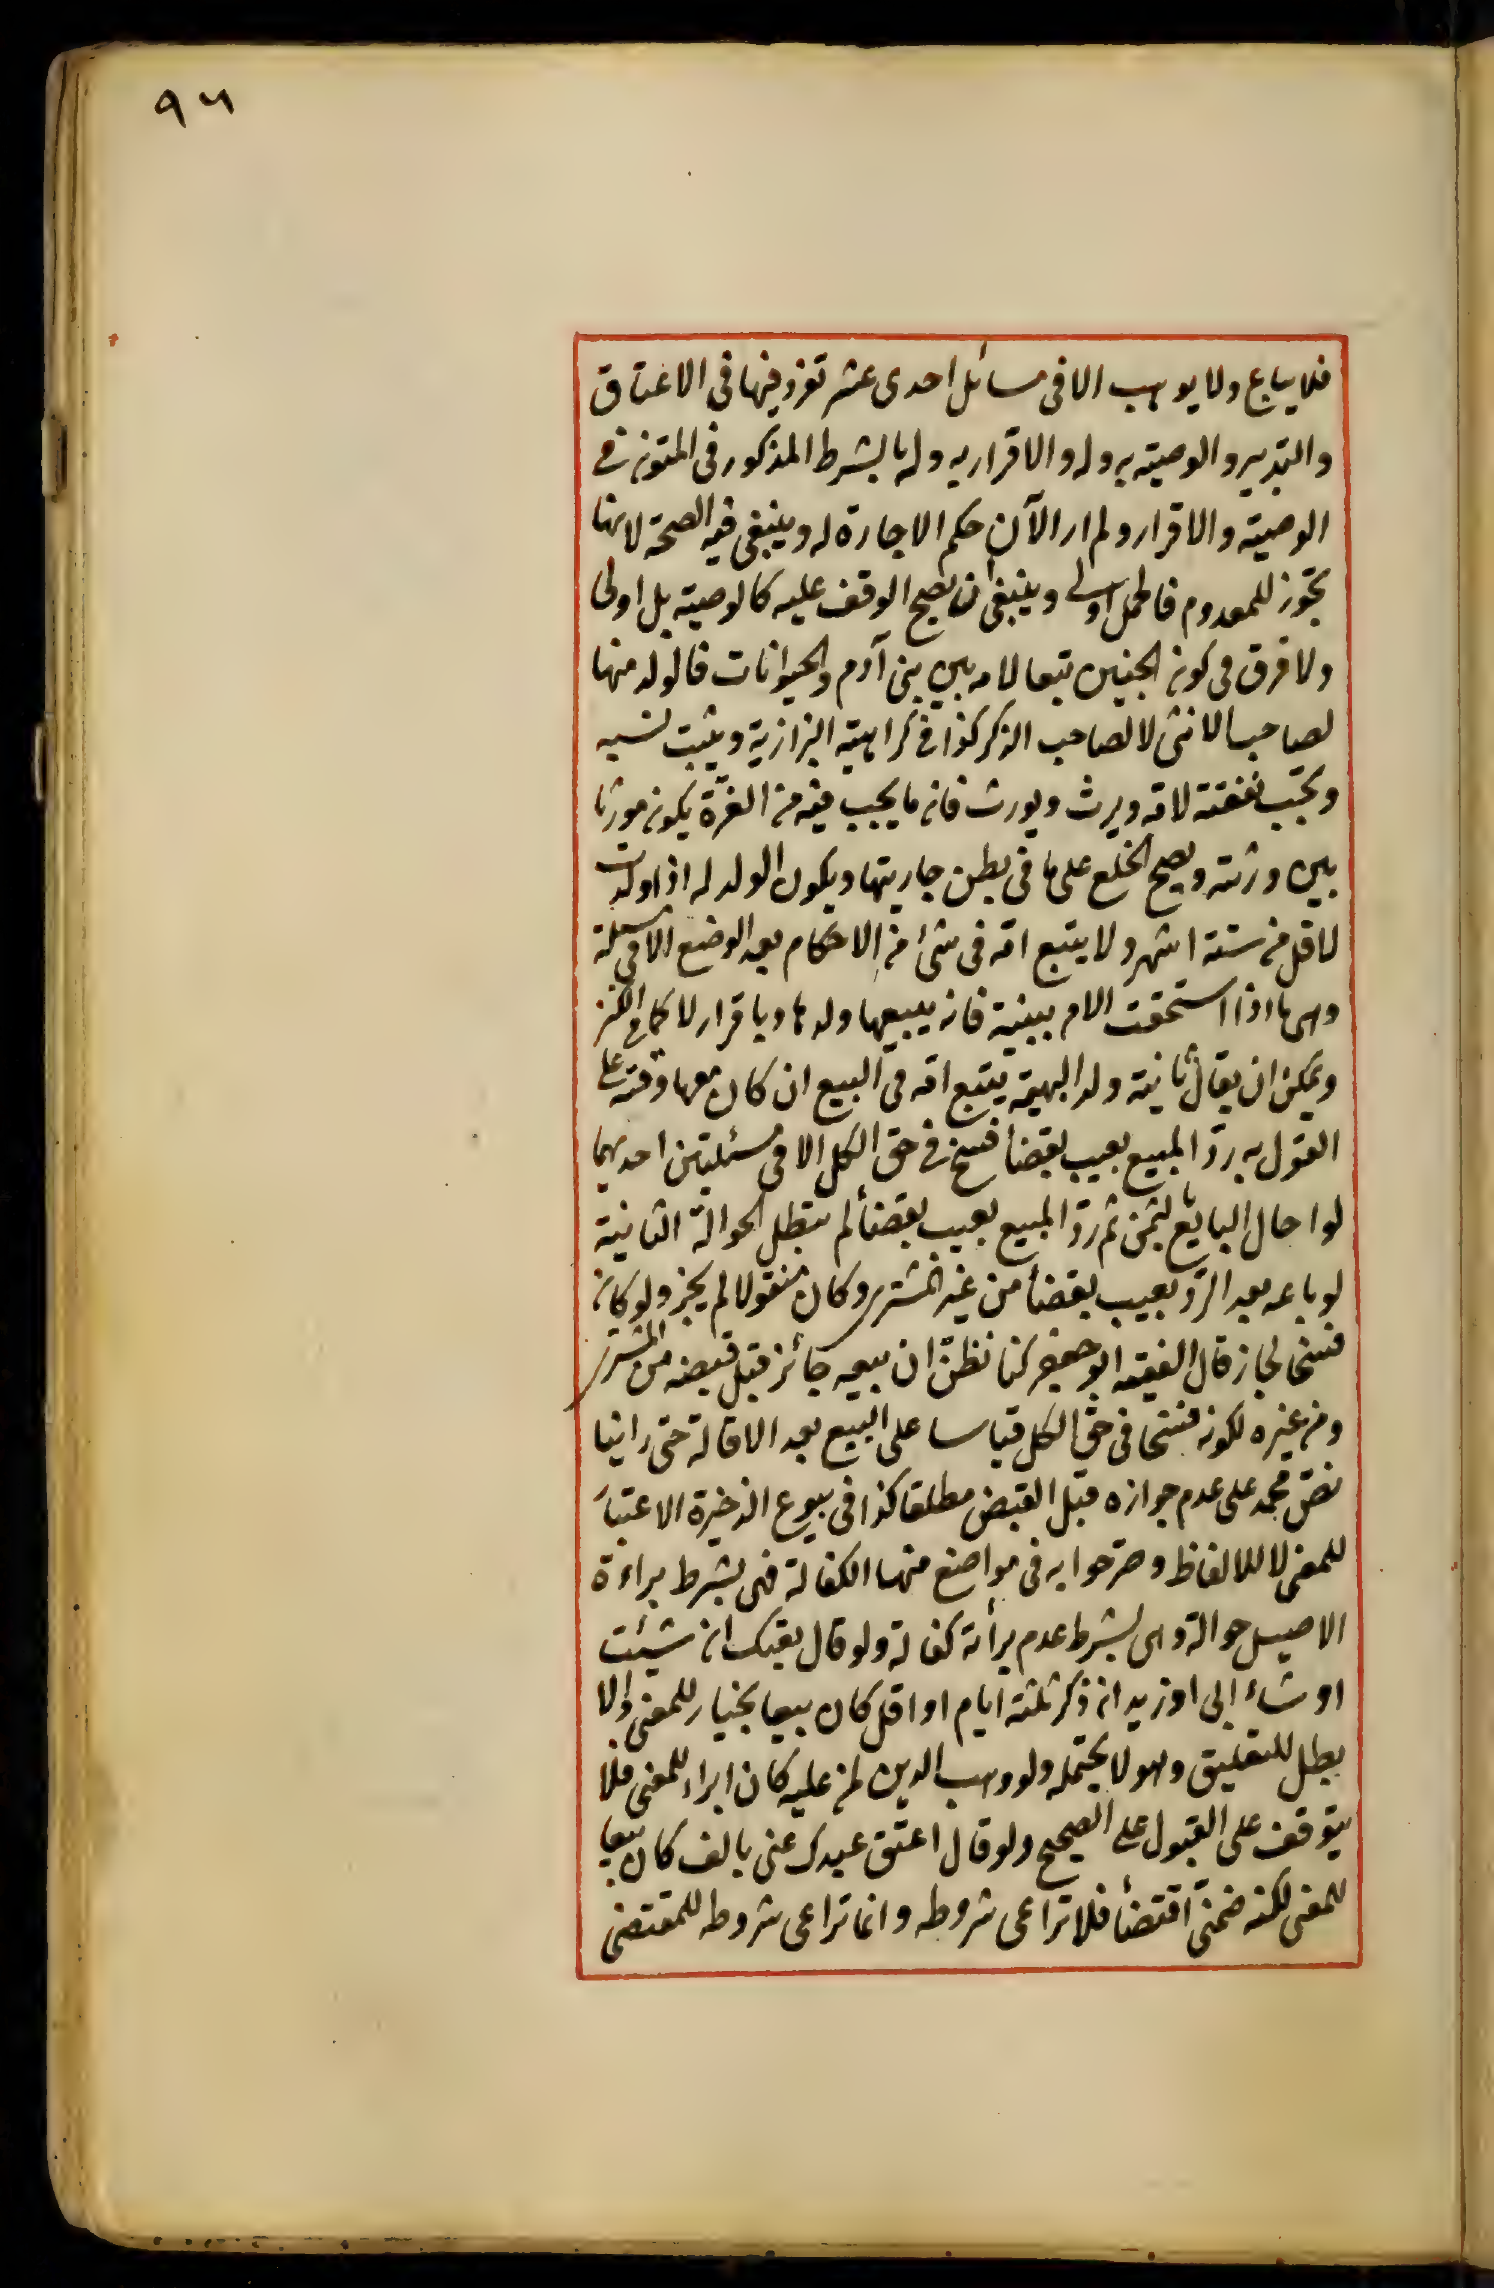 ٩٦
فلا يباع ولا يوهب الا فى مسائل احدى عشر تفرد فيها فى الاعتاق
والتدبير والوصيته به وله والاقرار به وله بالشرط المذكور فى المتون فى
الوصيته والاقرار ولم ار الآن حكم الاجارة له وينبغى فيه الصحة لانها
تجوز للمعدوم فالحمل اولى وينبغى ان يصح الوقف عليه كالوصيته بل اولى
ولا فرق فى كون الجنين تبعا لامه بين بنى آدم والحيوانات فالولد منها
لصاحب الانثى لا لصاحب الذكر كذا فى كراهيته البزازية ويثبت نسبه
وتجب نفقته لامه ويرث ويورث فان ما يجب فيه من الغرة يكون موروثا
بين ورثته ويصح الخلع على ما فى بطن جاريتها ويكون الولد له اذا ولدت
لاقل من ستة اشهر ولا يتبع امه فى شئ من الاحكام بعد الوضع الا فى مسئلة
وهى ما اذا استحقت الام ببينة فانه يبيعها ولدها وباقرار لا كما فى الكنز
ويمكن ان يقال ثانية ولد البهيمة يتبع امه فى البيع ان كان معها وقته على
القول به ردّ المبيع بعيب بقضأ فسخ فى حق الكل الا فى مسئلتين احديهما
لو احال البايع بالثمن ثم ردّ المبيع بعيب بقضأ لم تبطل الحوالة الثانية
لو باعه بعد الردّ بعيب بقضأ من غير المشترى وكان منقولا لم يجز ولو كان
فسخا لجاز قال الفقيه ابو جعفر كنا نظنّ ان بيعه جائز قبل قبضه من المشترى
ومن غيره لكونه فسخا فى حق الكل قياسا على البيع بعد الاقالة حتى راينا
نصّ محمد على عدم جوازه قبل القبض مطلقا كذا فى بيوع الذخيرة الاعتبار
للمعنى لا للالفاظ وصرّحوا به فى مواضع منها الكفالة فهى بشرط براءة
الاصيل حوالة وهى بشرط عدم برأته كفالة ولو قال بعتك ان شيئت
او شاء ابى او زيد ان ذكر ثلثة ايام او اقل كان بيعا بخيار للمعنى والا
بطل للتعليق وهو لا يحتمله ولو وهب الدين لمن عليه كان ابراء للمعنى فلا
يتوقف على القبول على الصحيح ولو قال اعتق عبدك عنى بالف كان بيعا
للمعنى لكنه ضمنىّ اقتضأ فلا تراعى شروطه وانما تراعى شروطه للمقتضى